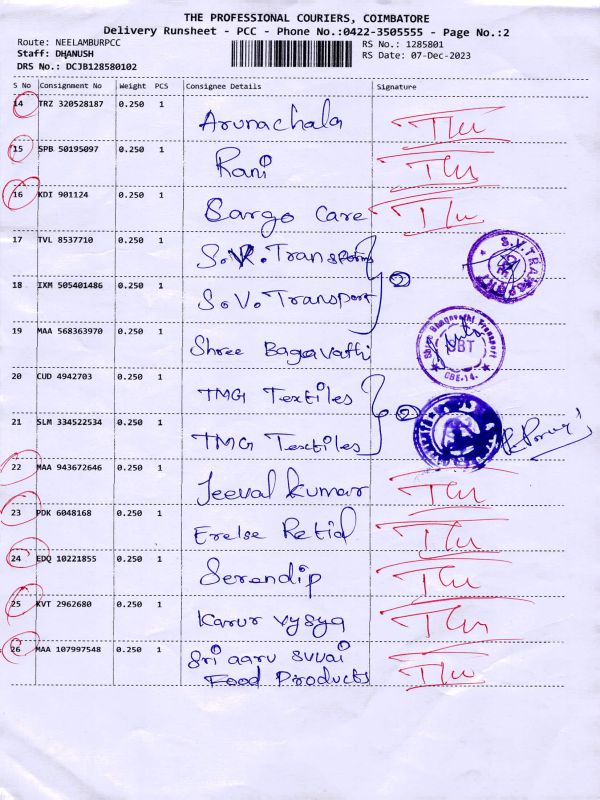 THE PROFESSIONAL COURIERS, COIMBATORE
Delivery Runsheet - PCC - Phone No.:0422-3505555 - Page No.:2
Route: NEELAMBURPCC
RS No.: 1285801
Staff: DHANUSH
RS Date: 07-Dec-2023
DRS No.: DCJB128580102
S No Consignment No Weight PCS Consignee Details Signature
14 TRZ 320528187 0.250 1 Arunachala
15 SPB 50195097 0.250 1 Rani
16 KDI 901124 0.250 1 Sargo Care
17 TVL 8537710 0.250 1 S.V. Transport S.V.TRANSPORT
18 IXM 505401486 0.250 1 S.V. Transport
19 MAA 568363970 0.250 1 Shree Bagavathi Shree Bhagavathi Transport SBT CBE-14.
20 CUD 4942703 0.250 1 TMG Textiles
21 SLM 334522534 0.250 1 TMG Textiles
22 MAA 943672646 0.250 1 Jeeval kumar
23 PDK 6048168 0.250 1 Erelse Retid
24 EDQ 10221855 0.250 1 Serendip
25 KVT 2962680 0.250 1 Karur Vysya
26 MAA 107997548 0.250 1 Sri aaru suvai
Food Products